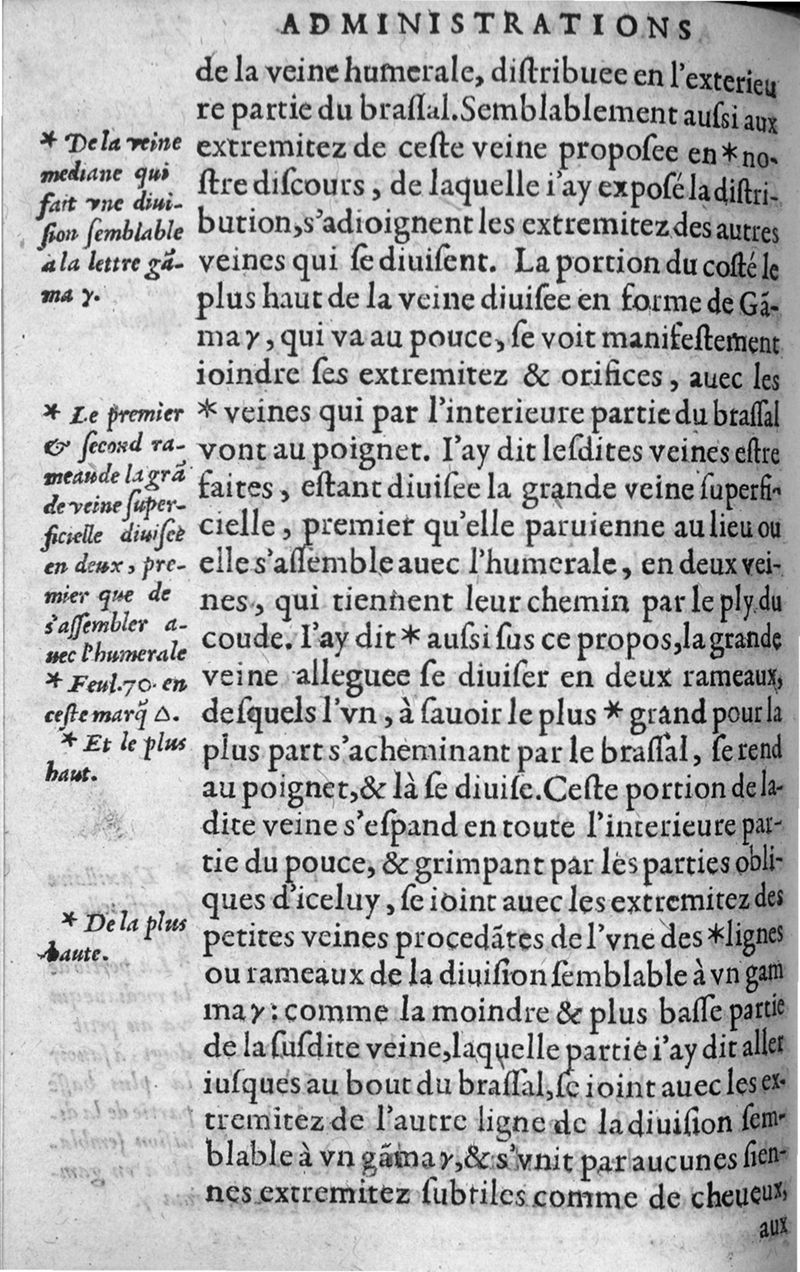 ADMINISTRATIONS
de la veine humerale, diſtribuee en l'exterieu
re partie du braſſal. Semblablement auſsi aux
extremitez de ceſte veine propoſee en * no-
ſtre diſcours, de laquelle i'ay expoſé la diſtri-
bution, s'adioignent les extremitez des autres
veines qui ſe diuiſent. La portion du coſté le
plus haut de la veine diuiſee en forme de Gã-
ma γ, qui va au pouce, ſe voit manifeſtement
ioindre ſes extremitez & orifices, auec les
* veines qui par l'interieure partie du braſſal
vont au poignet. I'ay dit leſdites veines eſtre
faites, eſtant diuiſee la grande veine ſuperfi-
cielle, premier qu'elle paruienne au lieu ou
elle s'aſſemble auec l'humerale, en deux vei-
nes, qui tiennent leur chemin par le ply du
coude. I'ay dit * auſsi ſus ce propos, la grande
veine alleguee ſe diuiſer en deux rameaux,
deſquels l'vn, à ſauoir le plus * grand pour la
plus part s'acheminant par le braſſal, ſe rend
au poignet, & là ſe diuiſe. Ceſte portion de la-
dite veine s'eſpand en toute l'interieure par-
tie du pouce, & grimpant par les parties obli-
ques d'iceluy, ſe ioint auec les extremitez des
petites veines procedãtes de l'vne des * lignes
ou rameaux de la diuiſion ſemblable à vn gam
ma γ: comme la moindre & plus baſſe partie
de la ſuſdite veine, laquelle partie i'ay dit aller
iuſques au bout du braſſal, ſe ioint auec les ex-
tremitez de l'autre ligne de la diuiſion ſem-
blable à vn gãma γ, & s'vnit par aucunes ſien-
nes extremitez ſubtiles comme de cheueux,
aux
* De la veine
mediane qui
fait vne diui-
ſion ſemblable
a la lettre gã-
ma γ.
* Le premier
& ſecond ra-
meau de la grã
de veine ſuper-
ficielle diuiſee
en deux, pre-
mier que de
s'aſſembler a-
uec l'humerale
* Feul. 70. en
ceſte marq̃ Δ.
* Et le plus
haut.
* De la plus
haute.